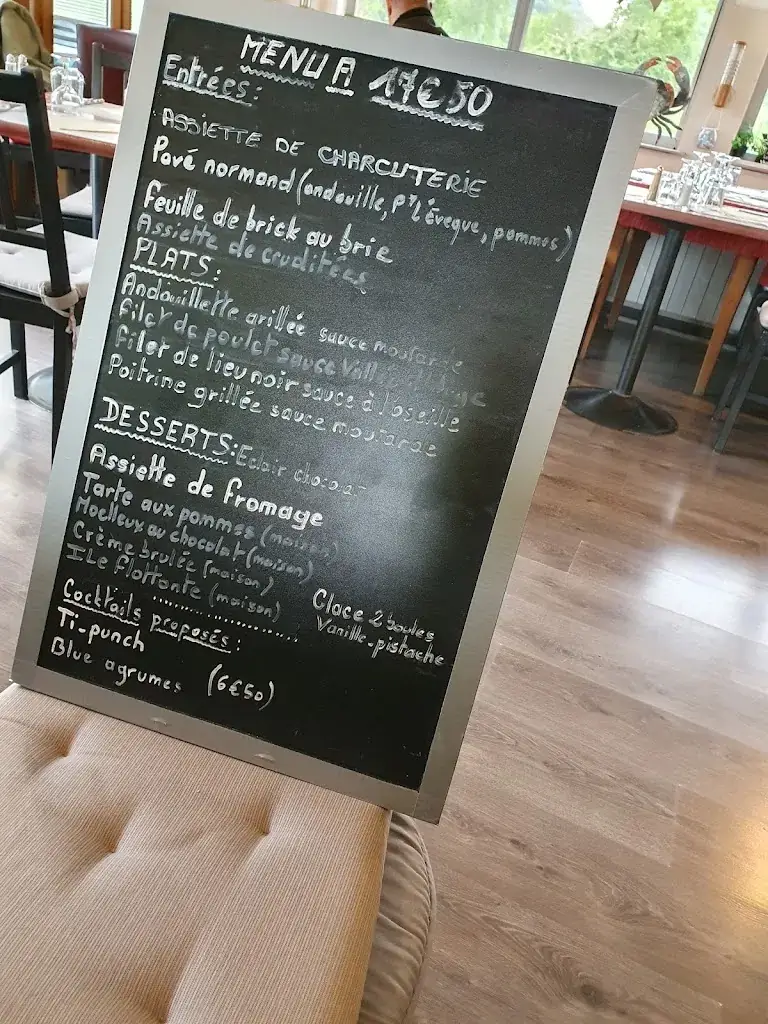 MENU A 17€50
Entrées:
ASSIETTE DE CHARCUTERIE
Pavé normand (andouille, Pt L'Éveque, pommes)
Feuille de brick au brie
Assiette de cruditées
PLATS:
Andouillette grillée sauce moutarde
Filet de poulet sauce Vallée d'Auge
Filet de lieu noir sauce à l'oseille
Poitrine grillée sauce moutarde
DESSERTS: Eclair chocolat
Assiette de fromage
Tarte aux pommes (maison)
Moelleux au chocolat (maison)
Crème brulée (maison)
ILe flottante (maison)
Glace 2 boules
Vanille-pistache
Cocktails proposés:
Ti-punch
Blue agrumes (6€50)